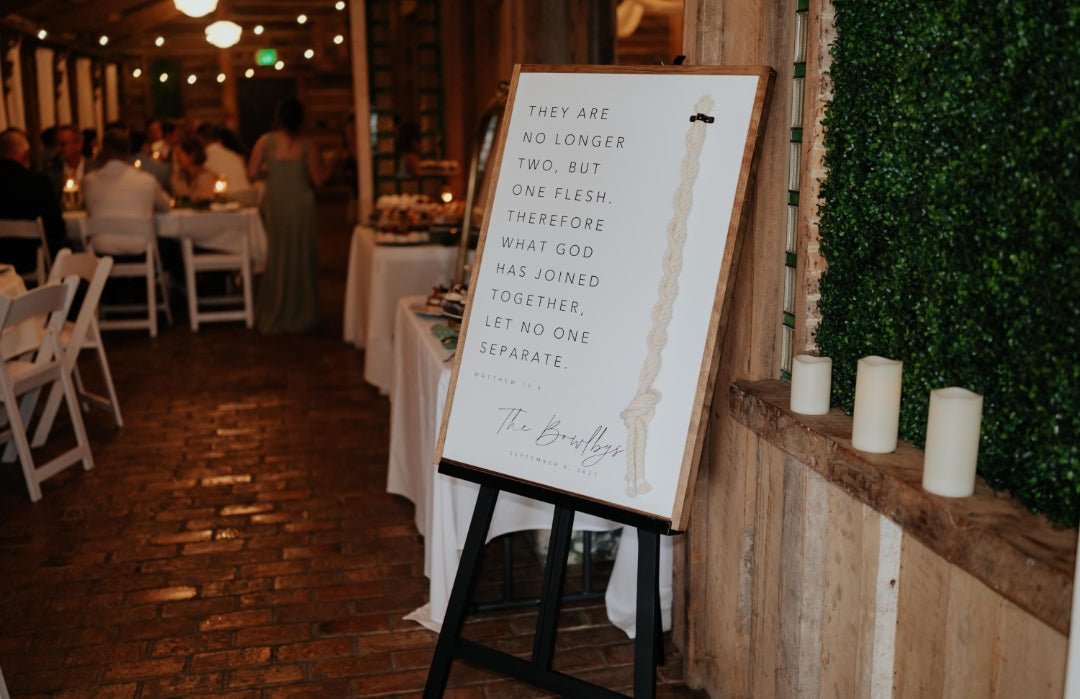 THEY ARE
NO LONGER
TWO, BUT
ONE FLESH.
THEREFORE
WHAT GOD
HAS JOINED
TOGETHER,
LET NO ONE
SEPARATE.
MATTHEW 19:6
The Bowlbys
SEPTEMBER 6, 2021